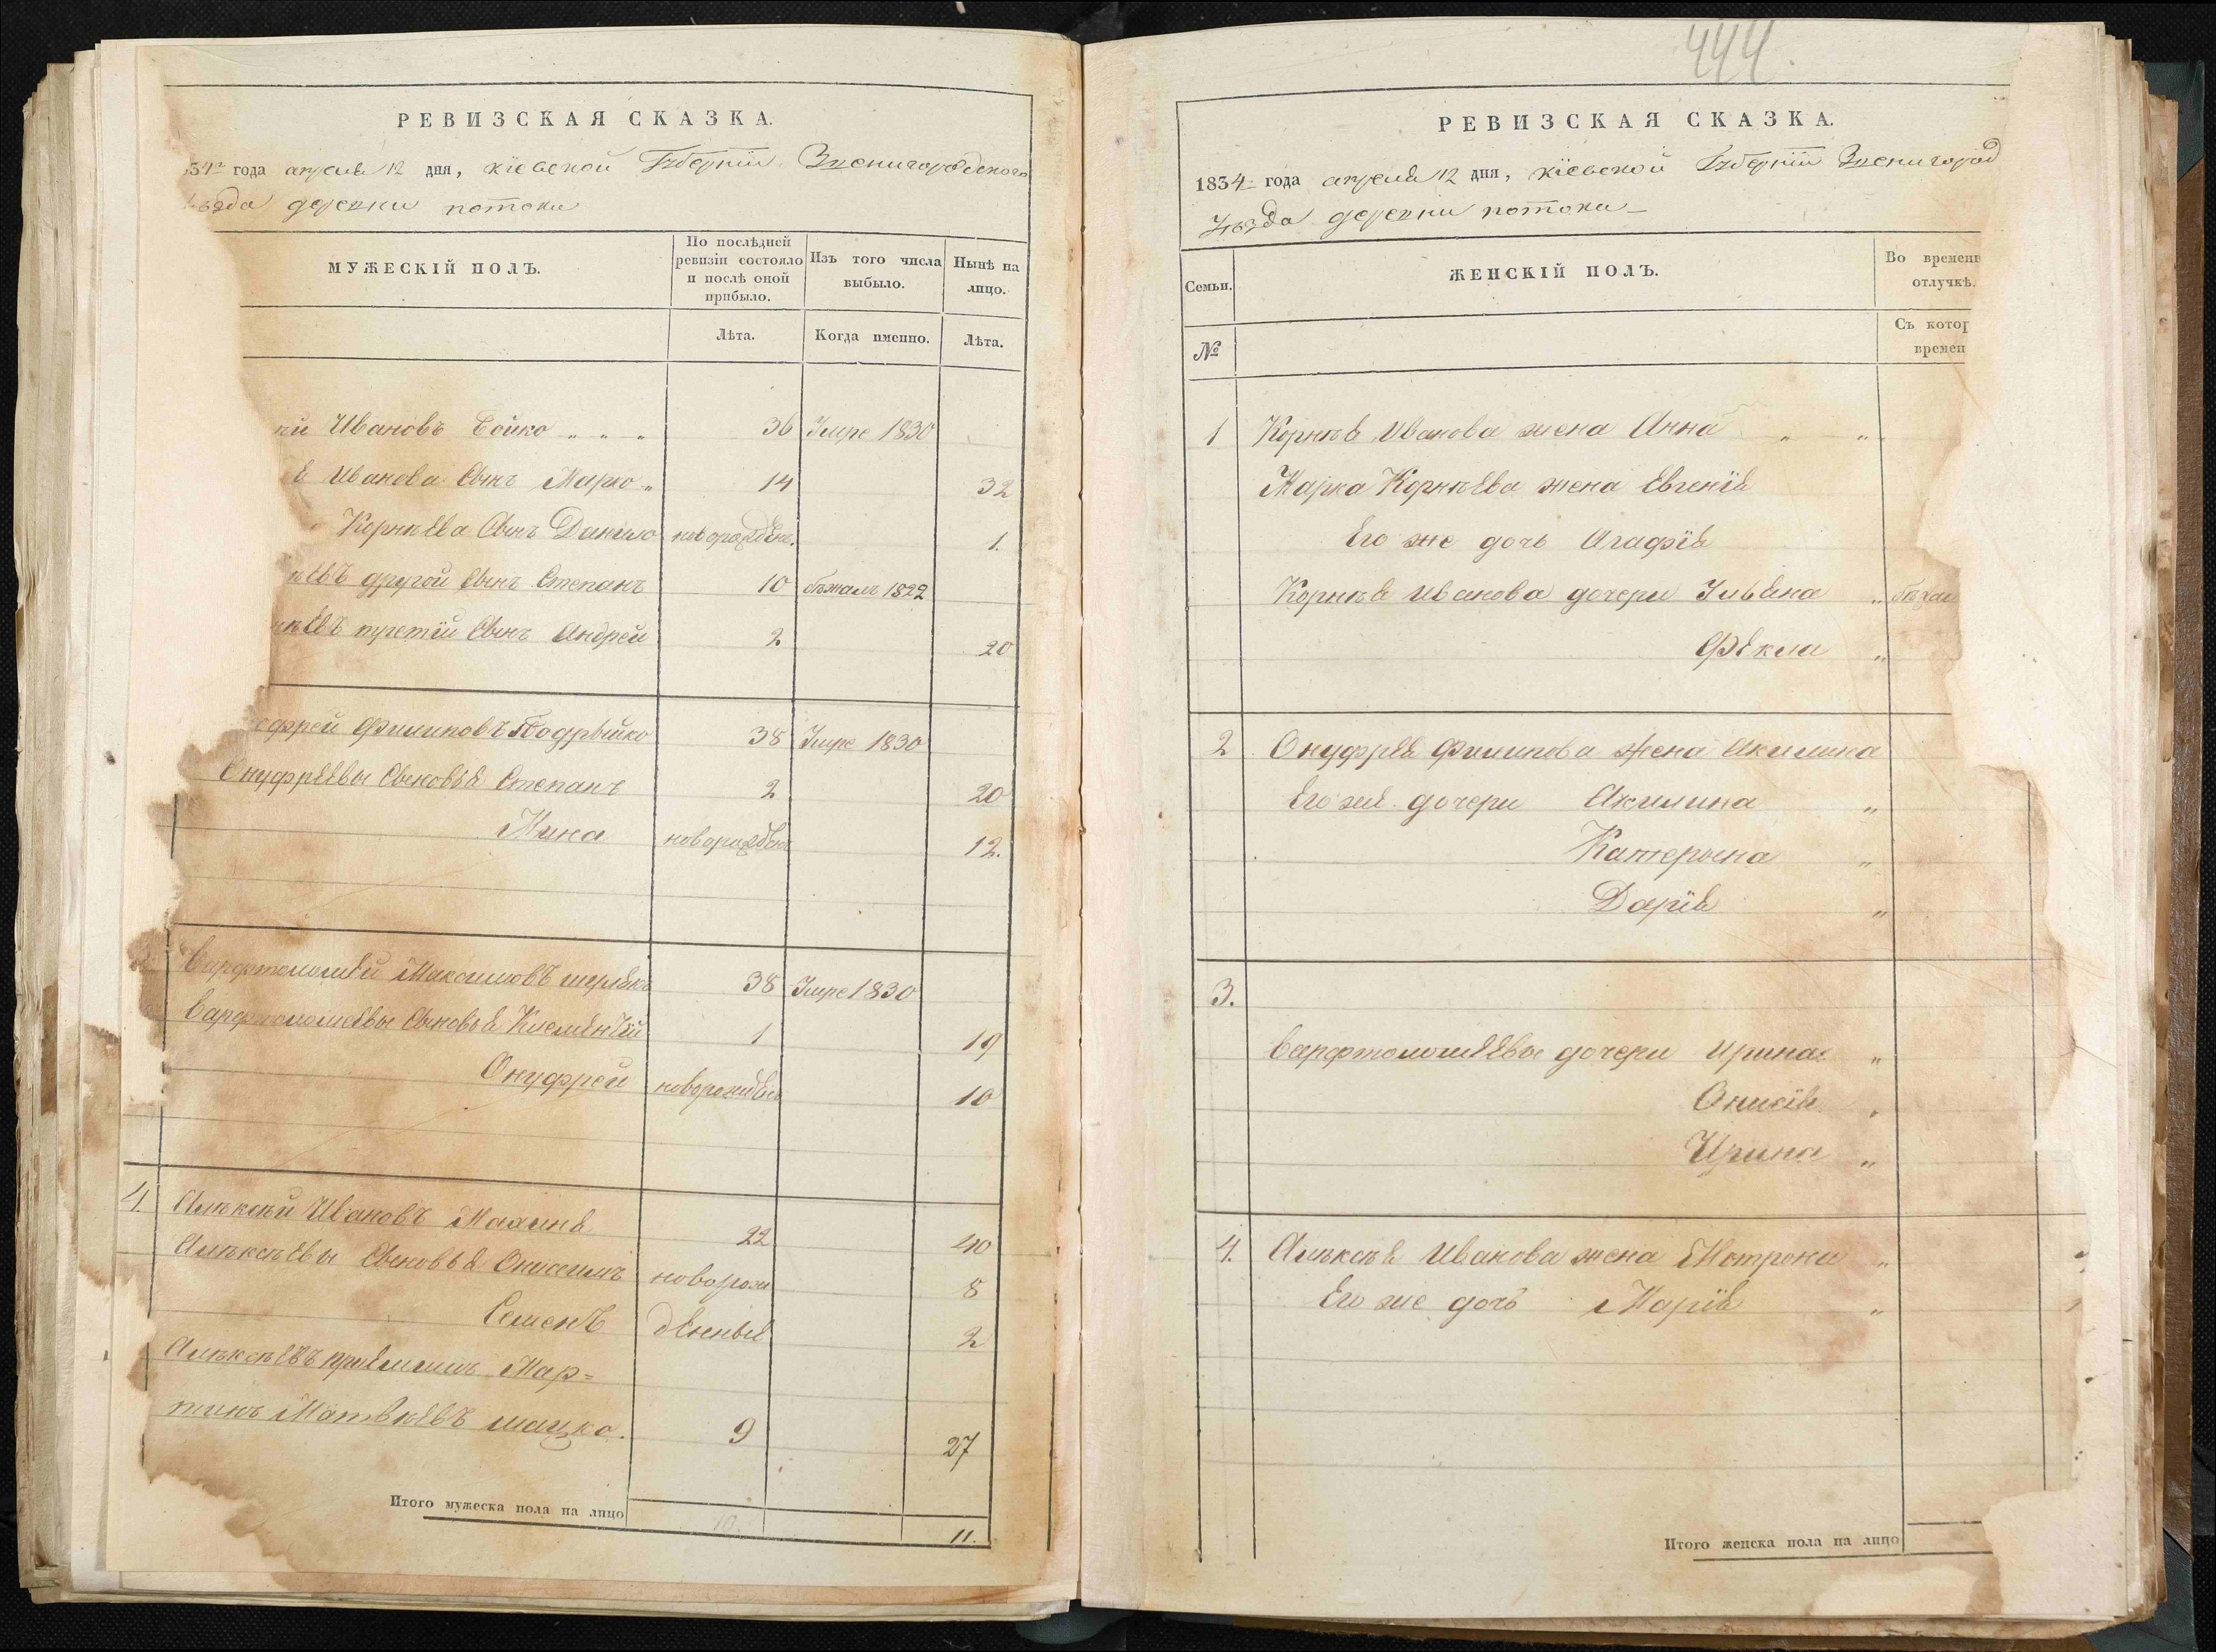 РЕВИЗСКАЯ СКАЗКА.
34го года апреля 12 дня, Кіевской Губерніи Звенигородского
ѣзда деревни потоки
МУЖЕСКІЙ ПОЛЪ.
По послѣдней ревизіи состояло и послѣ оной прибыло.
Изъ того числа выбыло.
Нынѣ на лицо.
Лѣта.
Когда именно.
Лѣта.
ѣй Ивановъ Бойко „ „ „ 36 Умре 1830
Иванова Сынъ Марко „ 14 32
Корнѣева Сынъ Данило новорожден. 1.
ѣевъ другой Сынъ Степанъ 10 бѣжалъ 1822
нѣевъ третій Сынъ Андрей 2 20
фрей Филиповъ 38 Умре 1830
Онуфреевы Сыновья Степанъ 2 20
Мина новорожден 12.
Варфтоломей Максимовъ 38 Умре 1830
Варфтоломеевы Сыновья 1 19
Онуфрей новорожден 10
4. Алѣксѣй Ивановъ Махиня 22 40
Алѣксѣевы Сыновья Онисимъ новорож 8
Семенъ денные 2
Алѣксѣевъ приемышъ Мар=
тинъ Матвѣевъ мацко. 9 27
Итого мужеска пола на лицо 11.
444.
РЕВИЗСКАЯ СКАЗКА.
1834го года апреля 12 дня, Кіевской Губерніи Звенигород
Уѣзда деревни потоки
Семьи.
ЖЕНСКІЙ ПОЛЪ.
Во временн отлучкѣ.
№
Съ котор времен
1 Корнѣя Иванова жена Анна „ „
Марка Корнѣева жена Евгенія
Его же дочь Агафія
Корнѣя Иванова дочери Ульяна „ бѣжа
Фекла „
2 Онуфрея Филипова жена Акилина
Его же дочери Акилина „
Катерына „
Дарія „
3.
Варфтоломеевы дочери Ирина „
Онисія „
Ирина „
4. Алѣксѣя Иванова жена Мотрона „
Его же дочь Марія „
Итого женска пола на лицо